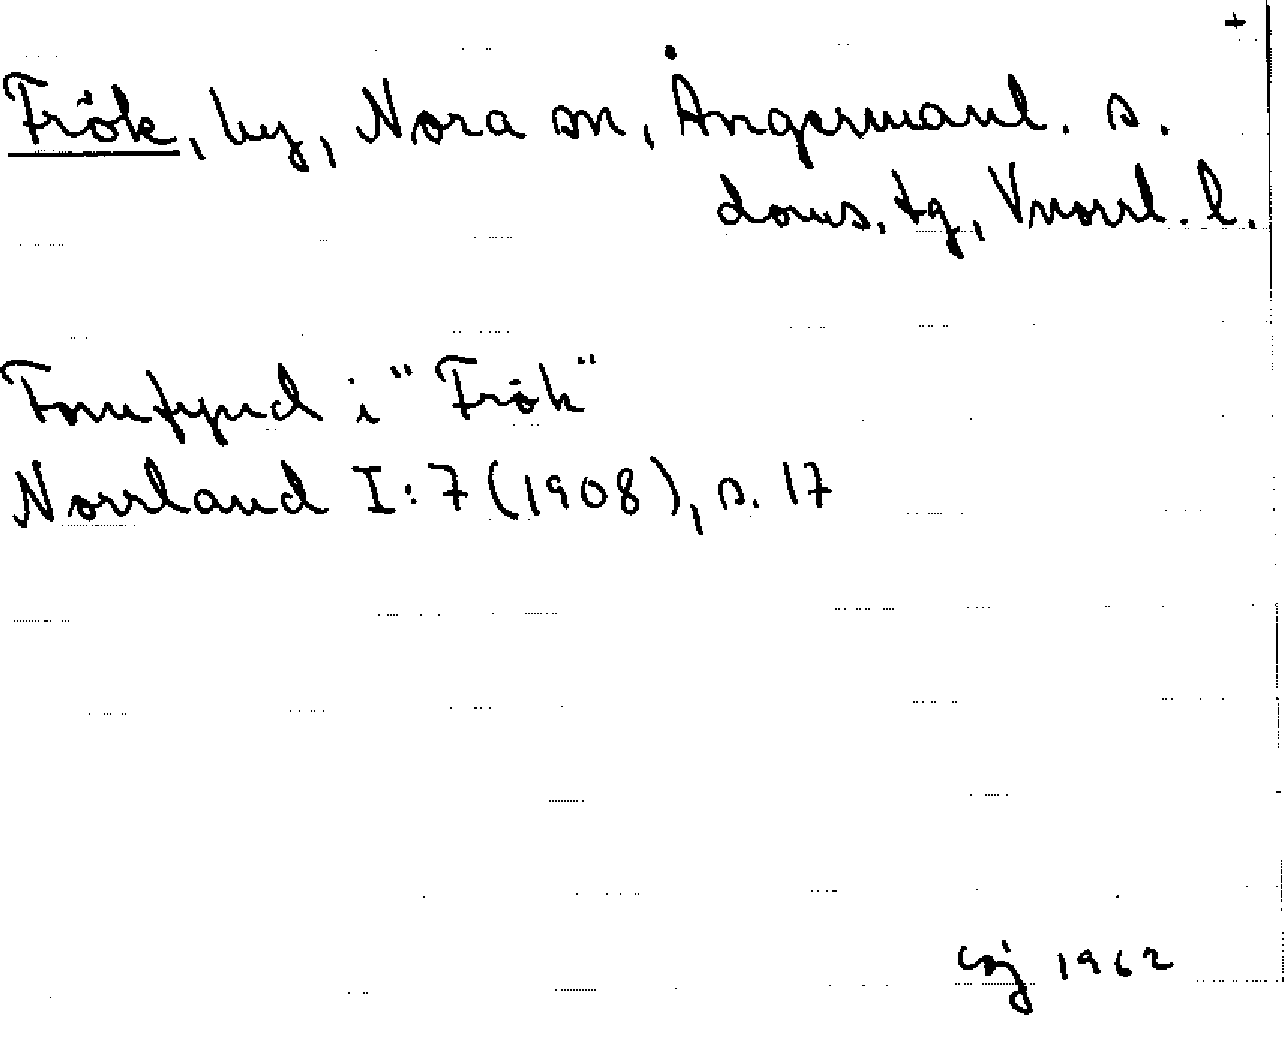 +
Frök, by, Nora sn, Ångermanl. s.
doms. tg, Vnorrl. l.
Fornfynd i "Frök"
Norrland I:7 (1908), s. 17
1962